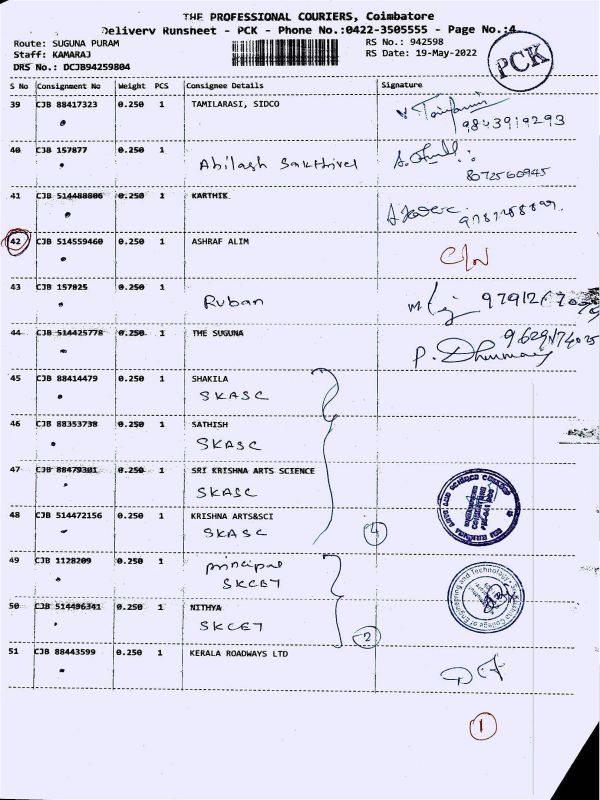 THE PROFESSIONAL COURIERS, Coimbatore
Delivery Runsheet - PCK - Phone No.:0422-3505555 - Page No.:4
Route: SUGUNA PURAM
RS No.: 942598
Staff: KAMARAJ
RS Date: 19-May-2022
DRS No.: DCJB94259804
PCK
S No Consignment No Weight PCS Consignee Details Signature
39 CJB 88417323 0.250 1 TAMILARASI, SIDCO
9843919293
40 CJB 157877 0.250 1 Abilash Sakthivel
8072560945
41 CJB 514488806 0.250 1 KARTHIK
42 CJB 514559460 0.250 1 ASHRAF ALIM C/N
43 CJB 157825 0.250 1 Ruban
44 CJB 514425778 0.250 1 THE SUGUNA
45 CJB 88414479 0.250 1 SHAKILA
SKASC
46 CJB 88353738 0.250 1 SATHISH
SKASC
47 CJB 88479301 0.250 1 SRI KRISHNA ARTS SCIENCE
SKASC
48 CJB 514472156 0.250 1 KRISHNA ARTS&SCI
SKASC 4
49 CJB 1128209 0.250 1 principal
SKCET
50 CJB 514496341 0.250 1 NITHYA
SKCET 2
51 CJB 88443599 0.250 1 KERALA ROADWAYS LTD
1